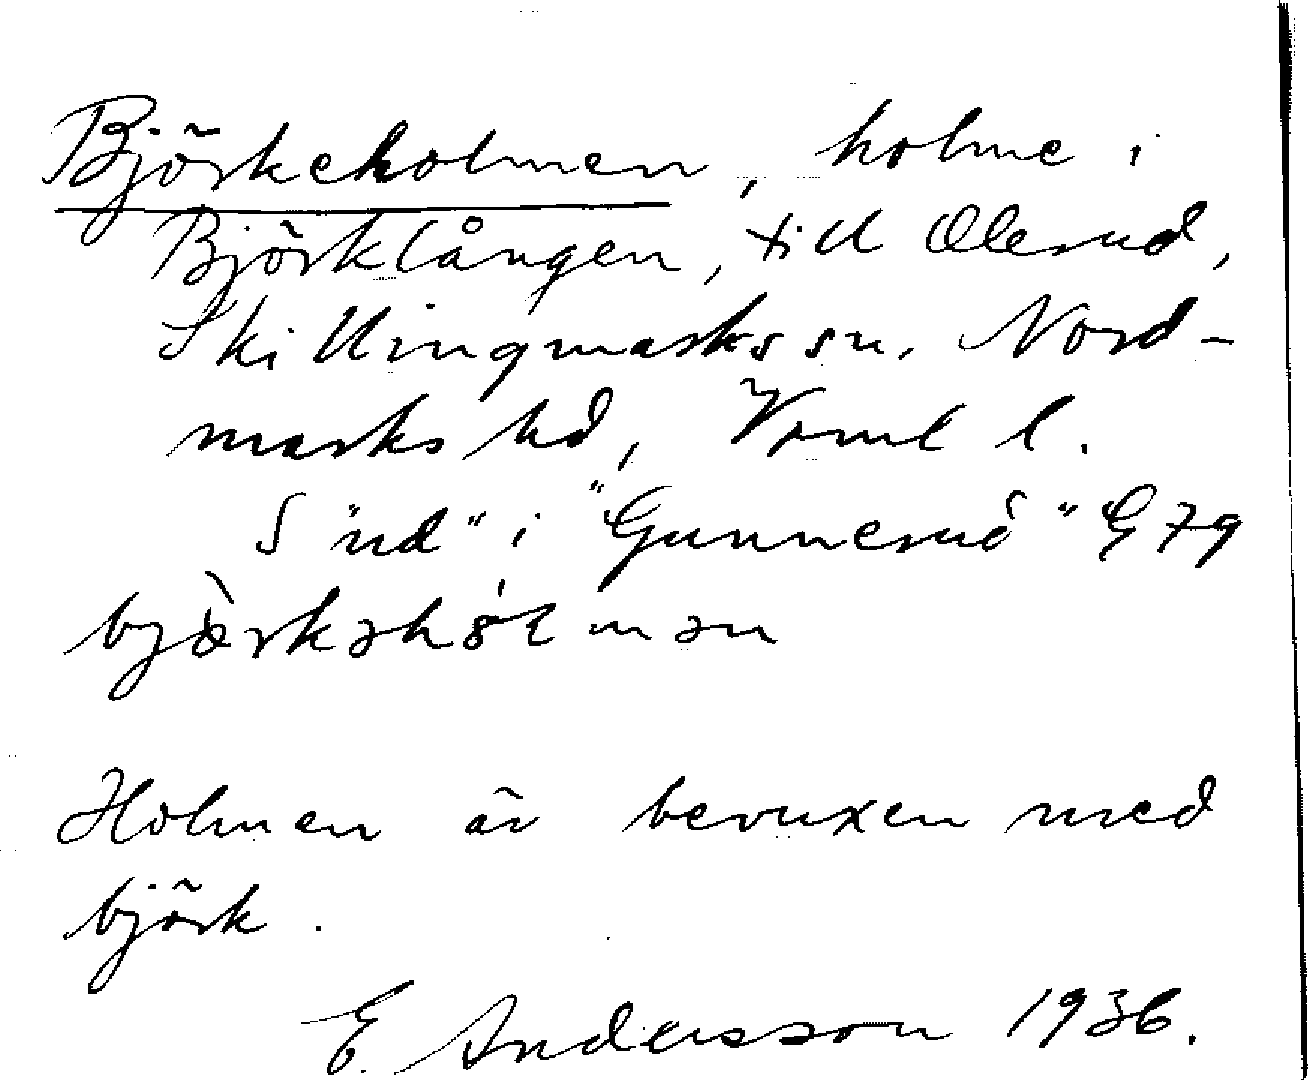 Björkeholmen, holme i
Björklången, till Olerud,
Skillingmarks sn. Nord-
marks hd, Vrml l.
S "ud" i "Gunnerud" E 79
Holmen är bevuxen med
björk.
E. Andersson 1936.